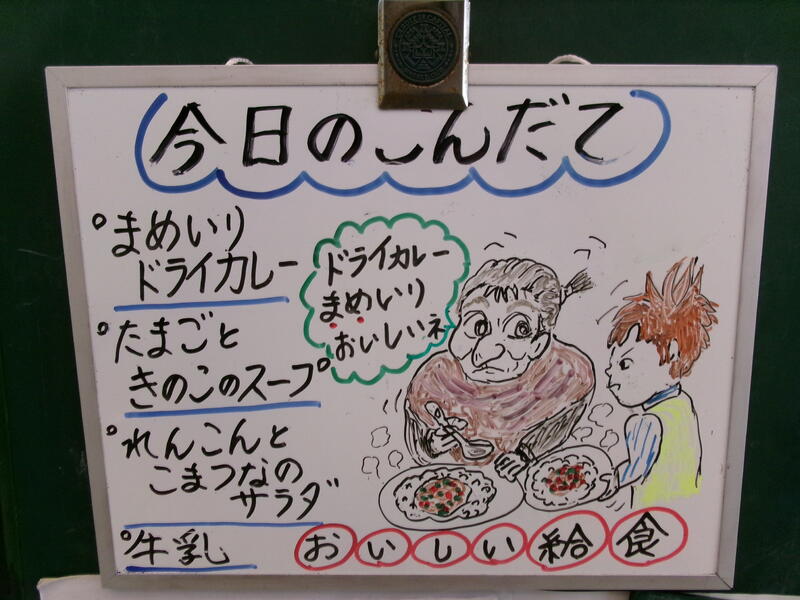 今日のこんだて
まめいり
ドライカレー
たまごと
きのこのスープ
れんこんと
こまつなの
サラダ
牛乳
ドライカレー
まめいり
おいしいネ
おいしい給食